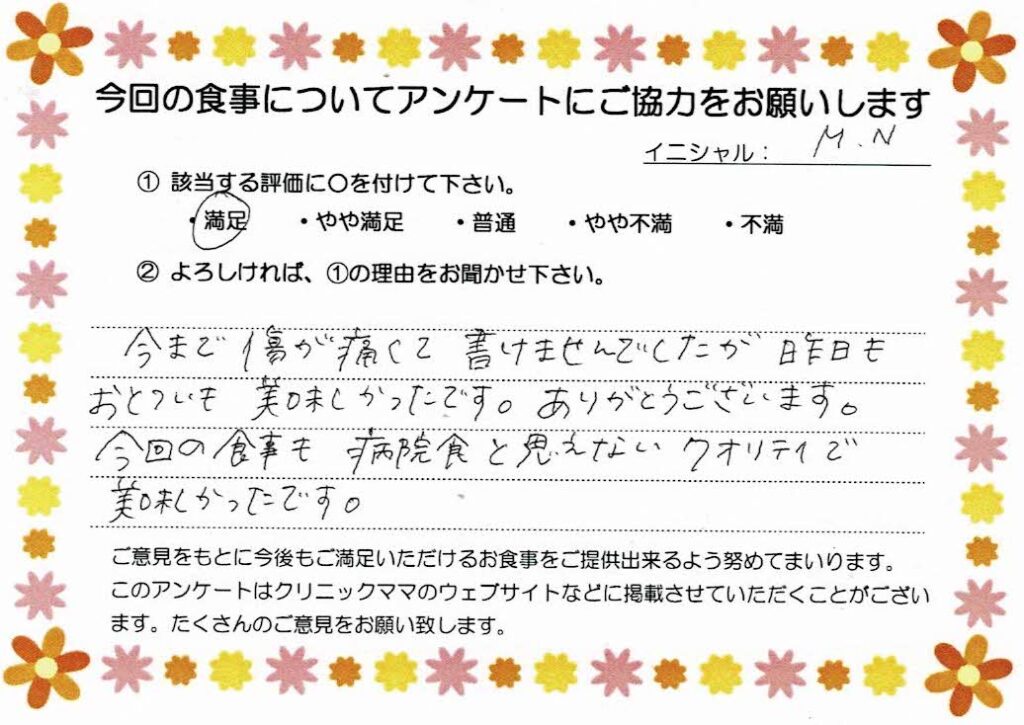 今回の食事についてアンケートにご協力をお願いします
イニシャル： M.N
① 該当する評価に〇を付けて下さい。
・満足 ・やや満足 ・普通 ・やや不満 ・不満
② よろしければ、①の理由をお聞かせ下さい。
今まで傷が痛くて 書けませんでしたが 昨日も
おとついも 美味しかったです。ありがとうございます。
今回の食事も 病院食と思えない クオリティで
美味しかったです。
ご意見をもとに今後もご満足いただけるお食事をご提供出来るよう努めてまいります。
このアンケートはクリニックママのウェブサイトなどに掲載させていただくことがござい
ます。たくさんのご意見をお願い致します。